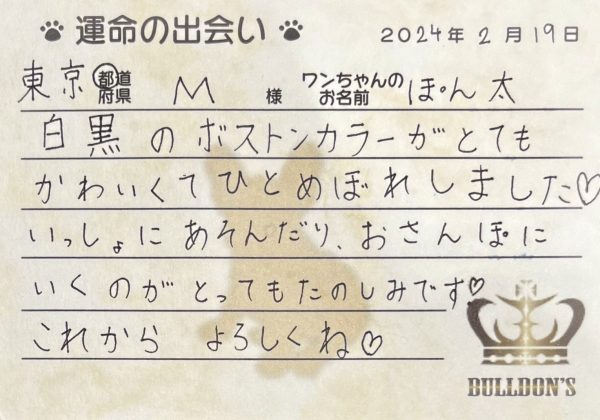 運命の出会い 2024年2月19日
東京 都道府県 M 様 ワンちゃんのお名前 ぽん太
白黒のボストンカラーがとても
かわいくてひとめぼれしました♡
いっしょにあそんだり、おさんぽに
いくのがとってもたのしみです♡
これからよろしくね♡
BULLDON'S